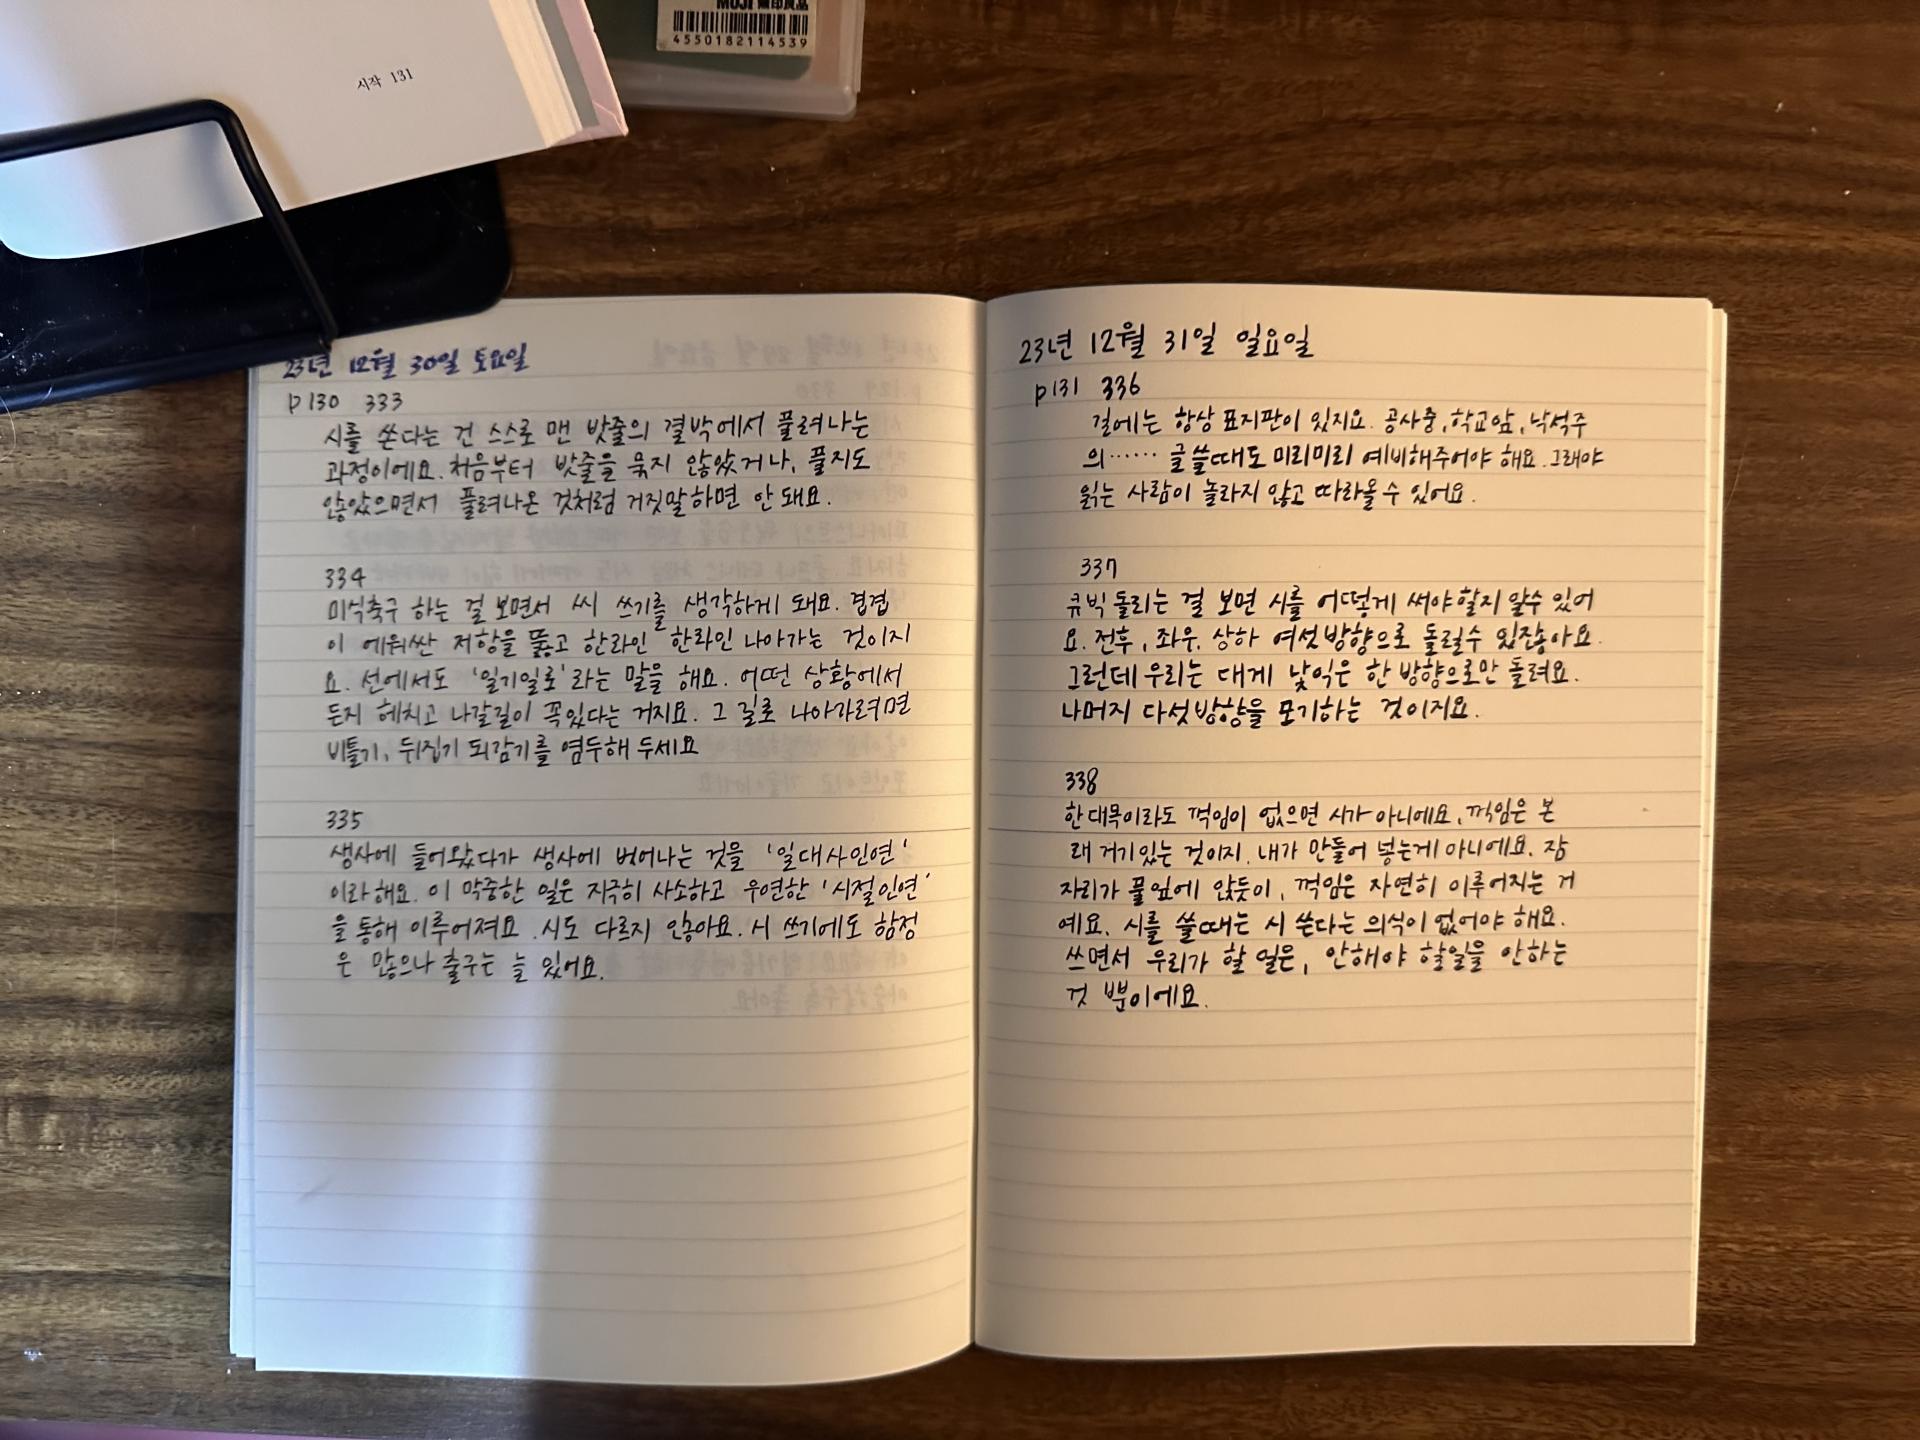 시작 131
MUJI 無印良品
4550182114539
23년 12월 30일 토요일
p130 333
시를 쓴다는 건 스스로 맨 밧줄의 결박에서 풀려나는
과정이에요. 처음부터 밧줄을 묶지 않았거나, 풀지도
않았으면서 풀려나온 것처럼 거짓말하면 안 돼요.
334
미식축구 하는 걸 보면서 씨 쓰기를 생각하게 돼요. 겹겹
이 에워싼 저항을 뚫고 한라인 한라인 나아가는 것이지
요. 선에서도 '일기일로'라는 말을 해요. 어떤 상황에서
든지 헤치고 나갈길이 꼭있다는 거지요. 그 길로 나아가려면
비틀기, 뒤집기 되감기를 염두해 두세요
335
생사에 들어왔다가 생사에 벗어나는 것을 '일대사인연'
이라 해요. 이 막중한 일은 지극히 사소하고 우연한 '시절인연'
을 통해 이루어져요. 시도 다르지 않아요. 시 쓰기에도 함정
은 많으나 출구는 늘 있어요.
23년 12월 31일 일요일
p131 336
길에는 항상 표지판이 있지요. 공사중, 학교앞, 낙석주
의…… 글쓸때도 미리미리 예비해주어야 해요. 그래야
읽는 사람이 놀라지 않고 따라올수 있어요.
337
큐빅 돌리는 걸 보면 시를 어떻게 써야할지 알수 있어
요. 전후, 좌우, 상하 여섯방향으로 돌릴수 있잖아요.
그런데 우리는 대게 낯익은 한 방향으로만 돌려요.
나머지 다섯방향을 포기하는 것이지요.
338
한대목이라도 꺽임이 없으면 시가 아니에요. 꺽임은 본
래 거기있는 것이지. 내가 만들어 넣는게 아니에요. 잠
자리가 풀잎에 앉듯이, 꺽임은 자연히 이루어지는 거
예요. 시를 쓸때는 시 쓴다는 의식이 없어야 해요.
쓰면서 우리가 할 일은, 안해야 할일을 안하는
것 뿐이에요.